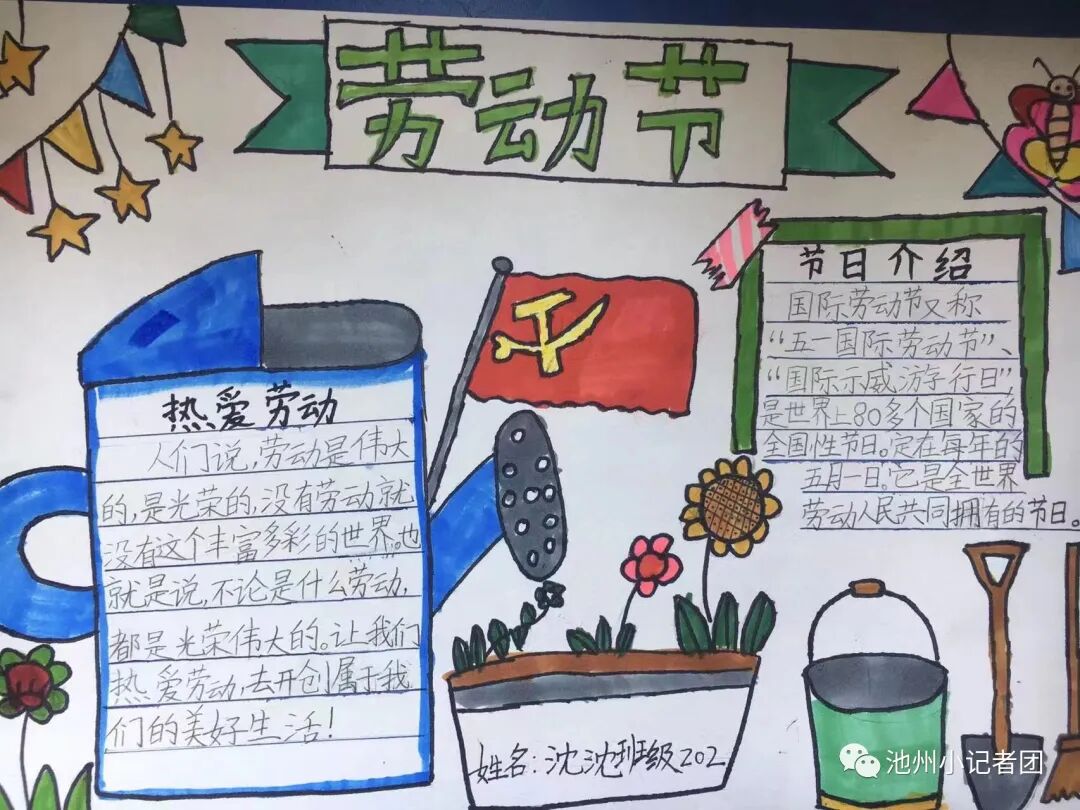 劳动节
节日介绍
国际劳动节又称
“五一国际劳动节”、
“国际示威游行日”,
是世界上80多个国家的
全国性节日。定在每年的
五月一日,它是全世界
劳动人民共同拥有的节日。
热爱劳动
人们说,劳动是伟大
的,是光荣的,没有劳动就
没有这个丰富多彩的世界。也
就是说,不论是什么劳动,
都是光荣伟大的。让我们
热爱劳动,去开创属于我
们的美好生活!
姓名:沈沈班级202
池州小记者团